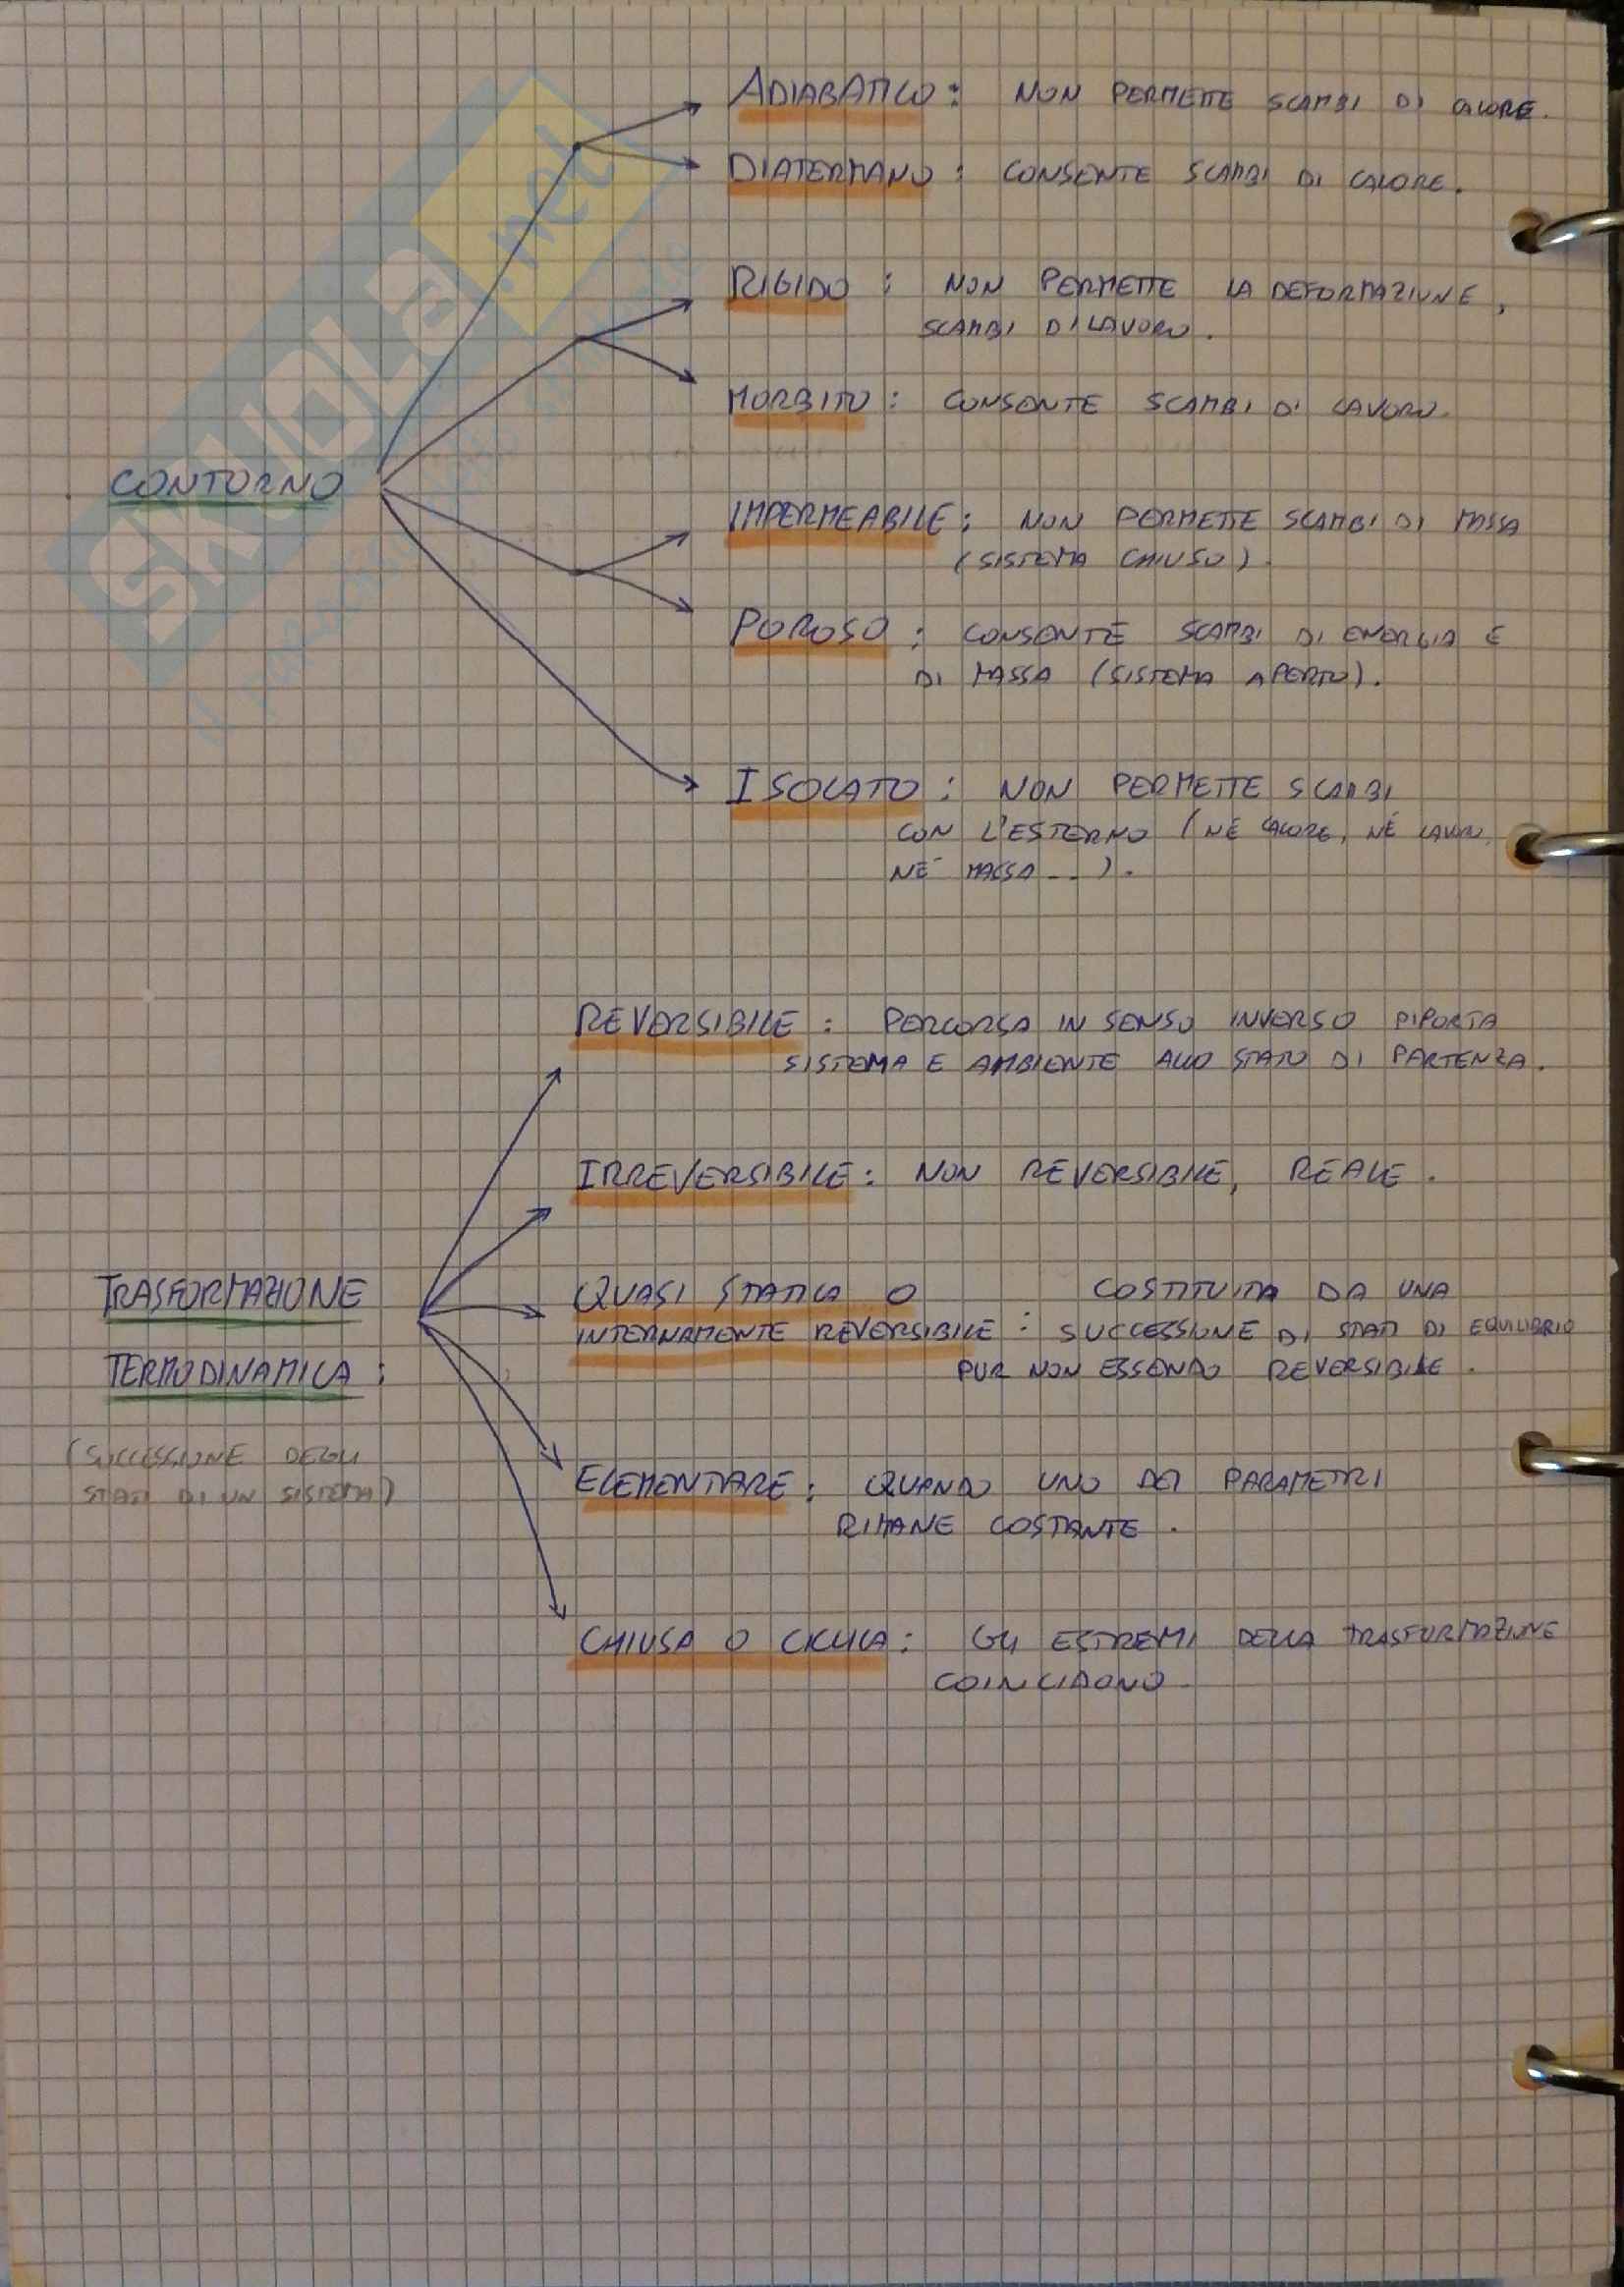 ADIABATICO : NON PERMETTE SCAMBI DI CALORE.
DIATERMANO : CONSENTE SCAMBI DI CALORE.
RIGIDO : NON PERMETTE LA DEFORMAZIONE,
SCAMBI DI LAVORO.
MORBITO : CONSENTE SCAMBI DI LAVORO.
CONTORNO
IMPERMEABILE : NON PERMETTE SCAMBI DI MASSA
(SISTEMA CHIUSO).
POROSO : CONSENTE SCAMBI DI ENERGIA E
DI MASSA (SISTEMA APERTO).
ISOLATO : NON PERMETTE SCAMBI
CON L'ESTERNO (NÉ CALORE, NÉ LAVORO,
NÉ MASSA...).
REVERSIBILE : PERCORSA IN SENSO INVERSO RIPORTA
SISTEMA E AMBIENTE ALLO STATO DI PARTENZA.
IRREVERSIBILE : NON REVERSIBILE, REALE.
TRASFORMAZIONE
TERMODINAMICA :
(SUCCESSIONE DEGLI
STATI DI UN SISTEMA)
QUASI STATICA O COSTITUITA DA UNA
INTERNAMENTE REVERSIBILE : SUCCESSIONE DI STATI DI EQUILIBRIO
PUR NON ESSENDO REVERSIBILE.
ELEMENTARE : QUANDO UNO DEI PARAMETRI
RIMANE COSTANTE.
CHIUSA O CICLICA : GLI ESTREMI DELLA TRASFORMAZIONE
COINCIDONO.
SKUOLa.net